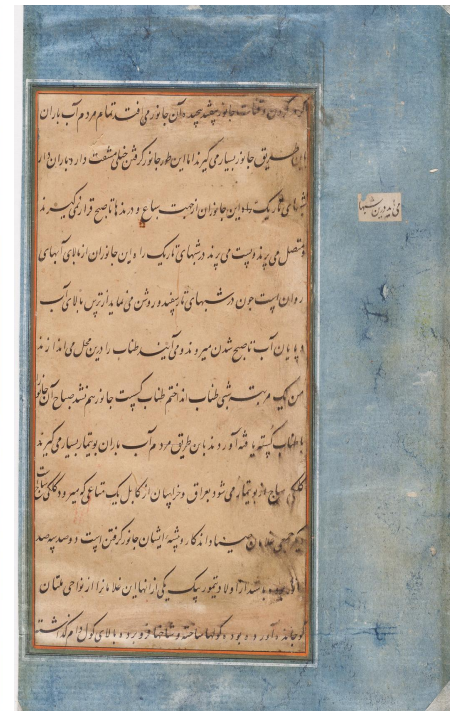 کرد گردن و قنات جانور پیشد بچیده آن جانور می افتد تمام مردم آب باران
باین طریق جانور بسیار می گیرند اما این طور جانور گرفتن خیلی مشقت دارد باران دار
شبهای تاریک راه این جانوران از جهت سباع و درندها تا صبح قرار نمی گیرند
و متصل می پرند و پست می پرند در شبهای تاریک راه این جانوران از بالای آبهای
روان است چون در شبهای تار سفید و روشن می نماید از ترس بالای آب
و پایان آب تا صبح شدن میروند و می آیند طناب را درین محل می اندازند
من یک مرتبه شبی طناب انداختم طناب گسست جانور هم نشد صباح آن جانور
با طناب گسسته یافته آوردند باین طریق مردم آب باران بوتیمار بسیار می گیرند
کلکی ساج از بوتیمار می شود بعراق و خراسان از کابل یک متاعی که میرود کلکی ساج است
دیگر جمعی غلامان صیاد اند کار و پیشه ایشان جانور گرفتن است دو صد سیصد
خانوار باشد از اولاد تیمور بیک یکی از انها این غلامانرا از نواحی ملتان
کوچانده آورده بوده کولها ساخته و شاخها فرو برده بالای کول دام گذاشته
می آید و درین شبها